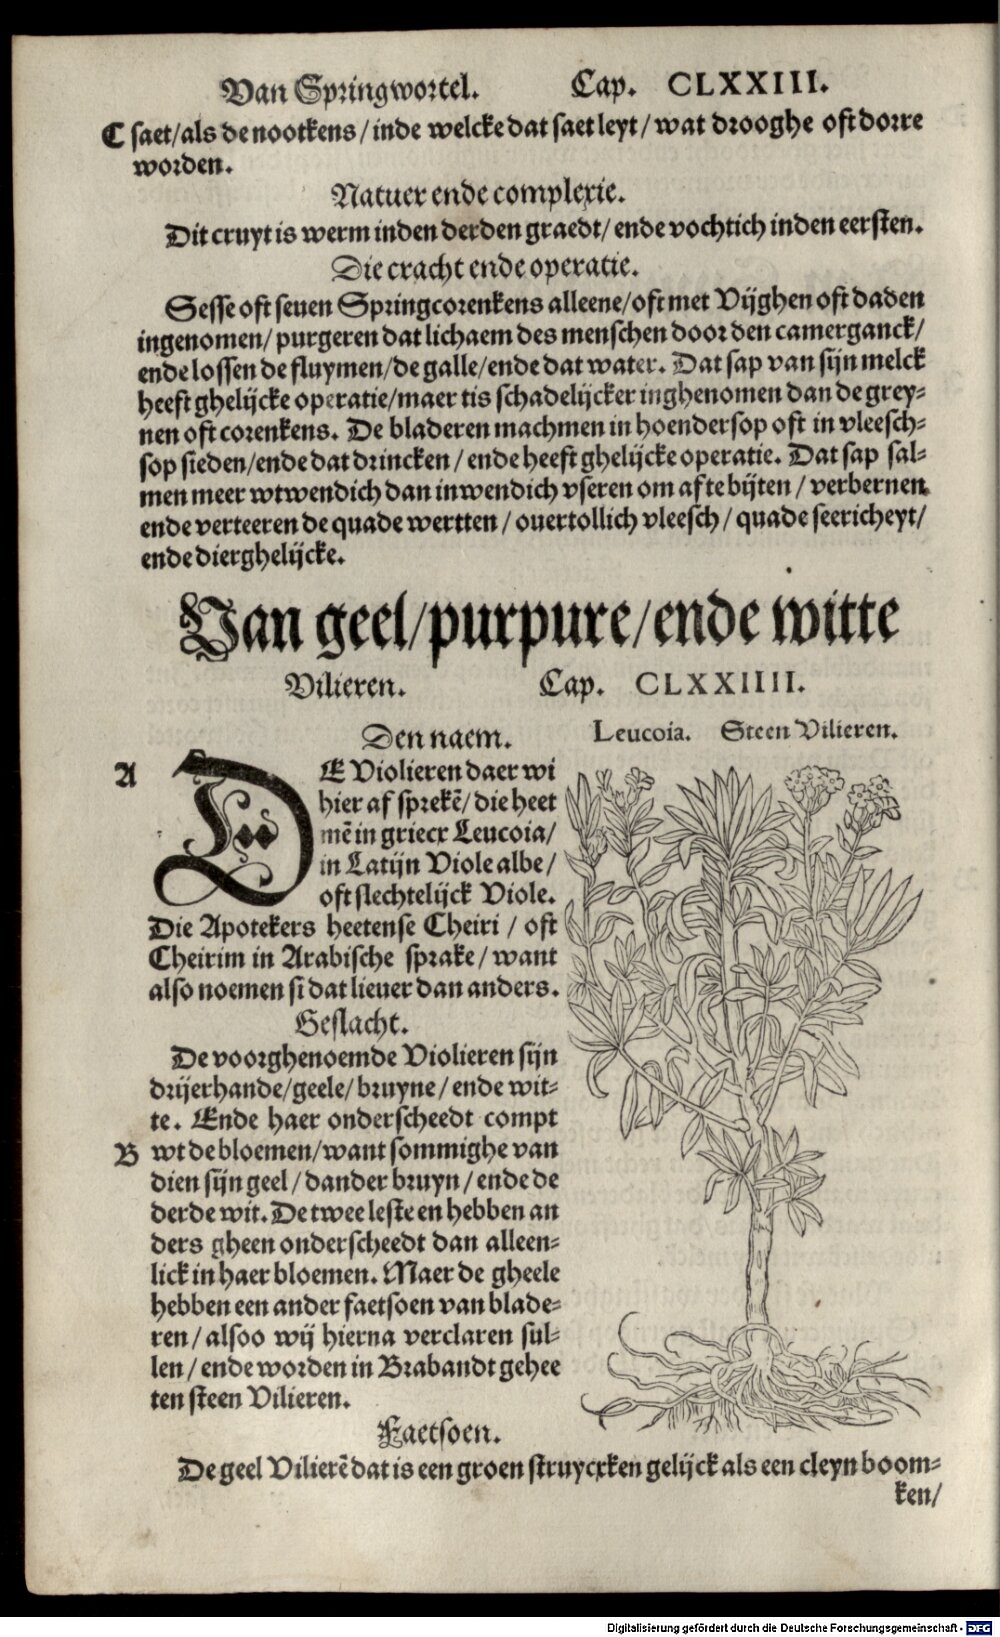 Van Springwortel. Cap. CLXXIII.
C saet/als de nootkens/inde welcke dat saet leyt/wat drooghe oft dorre
worden.
Natuer ende complexie.
Dit cruyt is werm inden derden graedt/ende vochtich inden eersten.
Die cracht ende operatie.
Sesse oft seuen Springcorenkens alleene/oft met Vijghen oft daden
ingenomen/purgeren dat lichaem des menschen door den camerganck/
ende lossen de fluymen/de galle/ende dat water. Dat sap van sijn melck
heeft ghelijcke operatie/maer tis schadelijcker inghenomen dan de grey-
nen oft corenkens. De bladeren machmen in hoendersop oft in vleesch-
sop sieden/ende dat drincken/ende heeft ghelijcke operatie. Dat sap sal-
men meer wtwendich dan inwendich vseren om af te bijten/verbernen
ende verteeren de quade wertten/ouertollich vleesch/quade seericheyt/
ende dierghelijcke.
Van geel/purpure/ende witte
Vilieren. Cap. CLXXIIII.
Den naem.
Leucoia. Steen Vilieren.
A
DE Violieren daer wi
hier af sprekē/die heet
mē in griecx Leucoia/
in Latijn Viole albe/
oft slechtelijck Viole.
Die Apotekers heetense Cheiri/oft
Cheirim in Arabische sprake/want
also noemen si dat lieuer dan anders.
Geslacht.
De voorghenoemde Violieren sijn
drijerhande/geele/bruyne/ende wit-
te. Ende haer onderscheedt compt
B wt de bloemen/want sommighe van
dien sijn geel/dander bruyn/ende de
derde wit. De twee leste en hebben an
ders gheen onderscheedt dan alleen-
lick in haer bloemen. Maer de gheele
hebben een ander faetsoen van blade-
ren/alsoo wij hierna verclaren sul-
len/ende worden in Brabandt gehee
ten steen Vilieren.
Faetsoen.
De geel Vilierē dat is een groen struycxken gelijck als een cleyn boom-
ken/
Digitalisierung gefördert durch die Deutsche Forschungsgemeinschaft - DFG